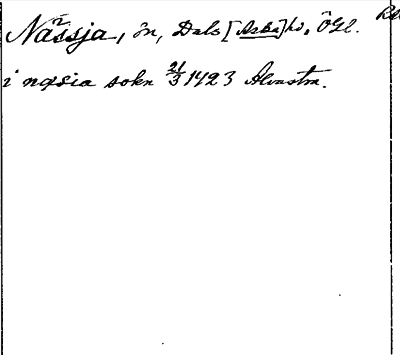 Nässja, sn, Dals [Aska] hd, Ögl.
i næsia sokn 21/3 1423 Alvastra.